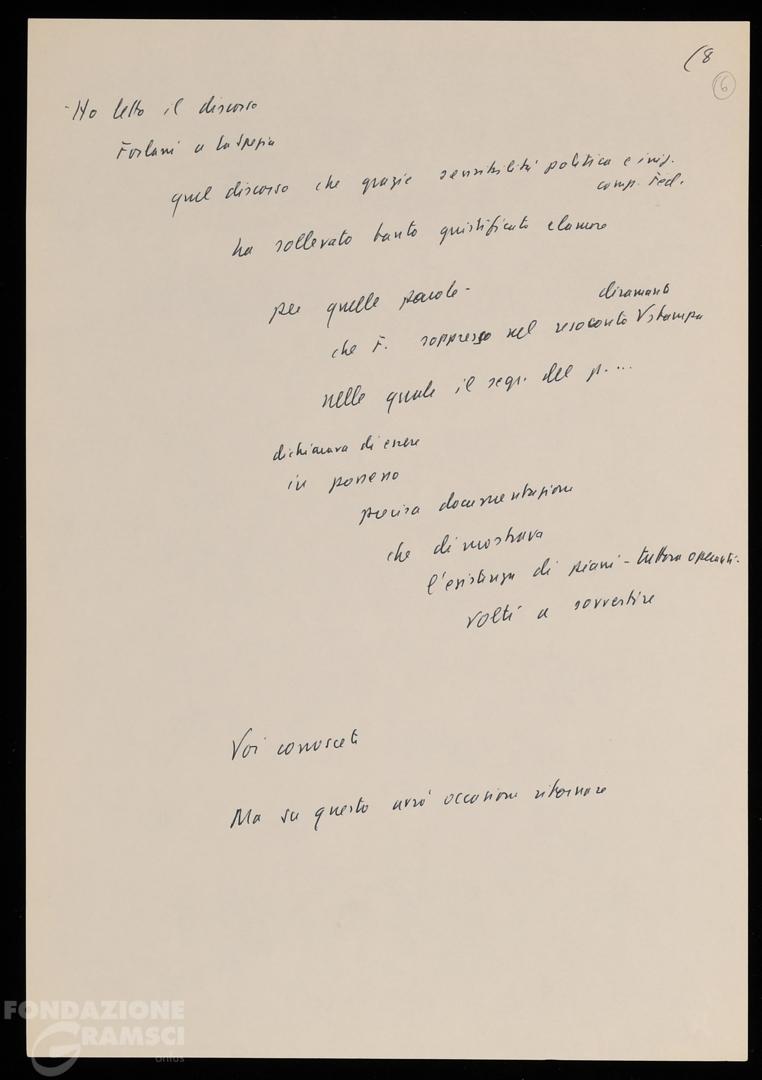 (8
6
-Ho letto il discorso
Forlani a La Spezia
quel discorso che grazie sensibilità politica e iniz.
comp. Fed.
ha sollevato tanto giustificato clamore
per quelle parole-
che F. soppresse nel resoconto diramato V stampa
nelle quale il segr. del p. ...
dichiarava di essere
in possesso
precisa documentazione
che dimostrava
l'esistenza di piani - tuttora operanti-
volti a sovvertire
Voi conoscete
Ma su questo avrò occasione ritornare
FONDAZIONE
GRAMSCI
onlus